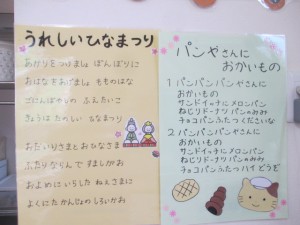 うれしいひなまつり
あかりをつけましょ ぼんぼりに
おはなをあげましょ もものはな
ごにんばやしの ふえたいこ
きょうは たのしい ひなまつり
おだいりさまと おひなさま
ふたりならんで すましがお
およめにいらした ねえさまに
よくにた かんじょの しろいかお
パンやさんに
おかいもの
1 パンパンパンやさんに
おかいもの
サンドイッチに メロンパン
ねじりドーナツ パンのみみ
チョコパンふたつ くださいな
2 パンパンパンやさんに
おかいもの
サンドイッチに メロンパン
ねじりドーナツ パンのみみ
チョコパンふたつ ハイ どうぞ